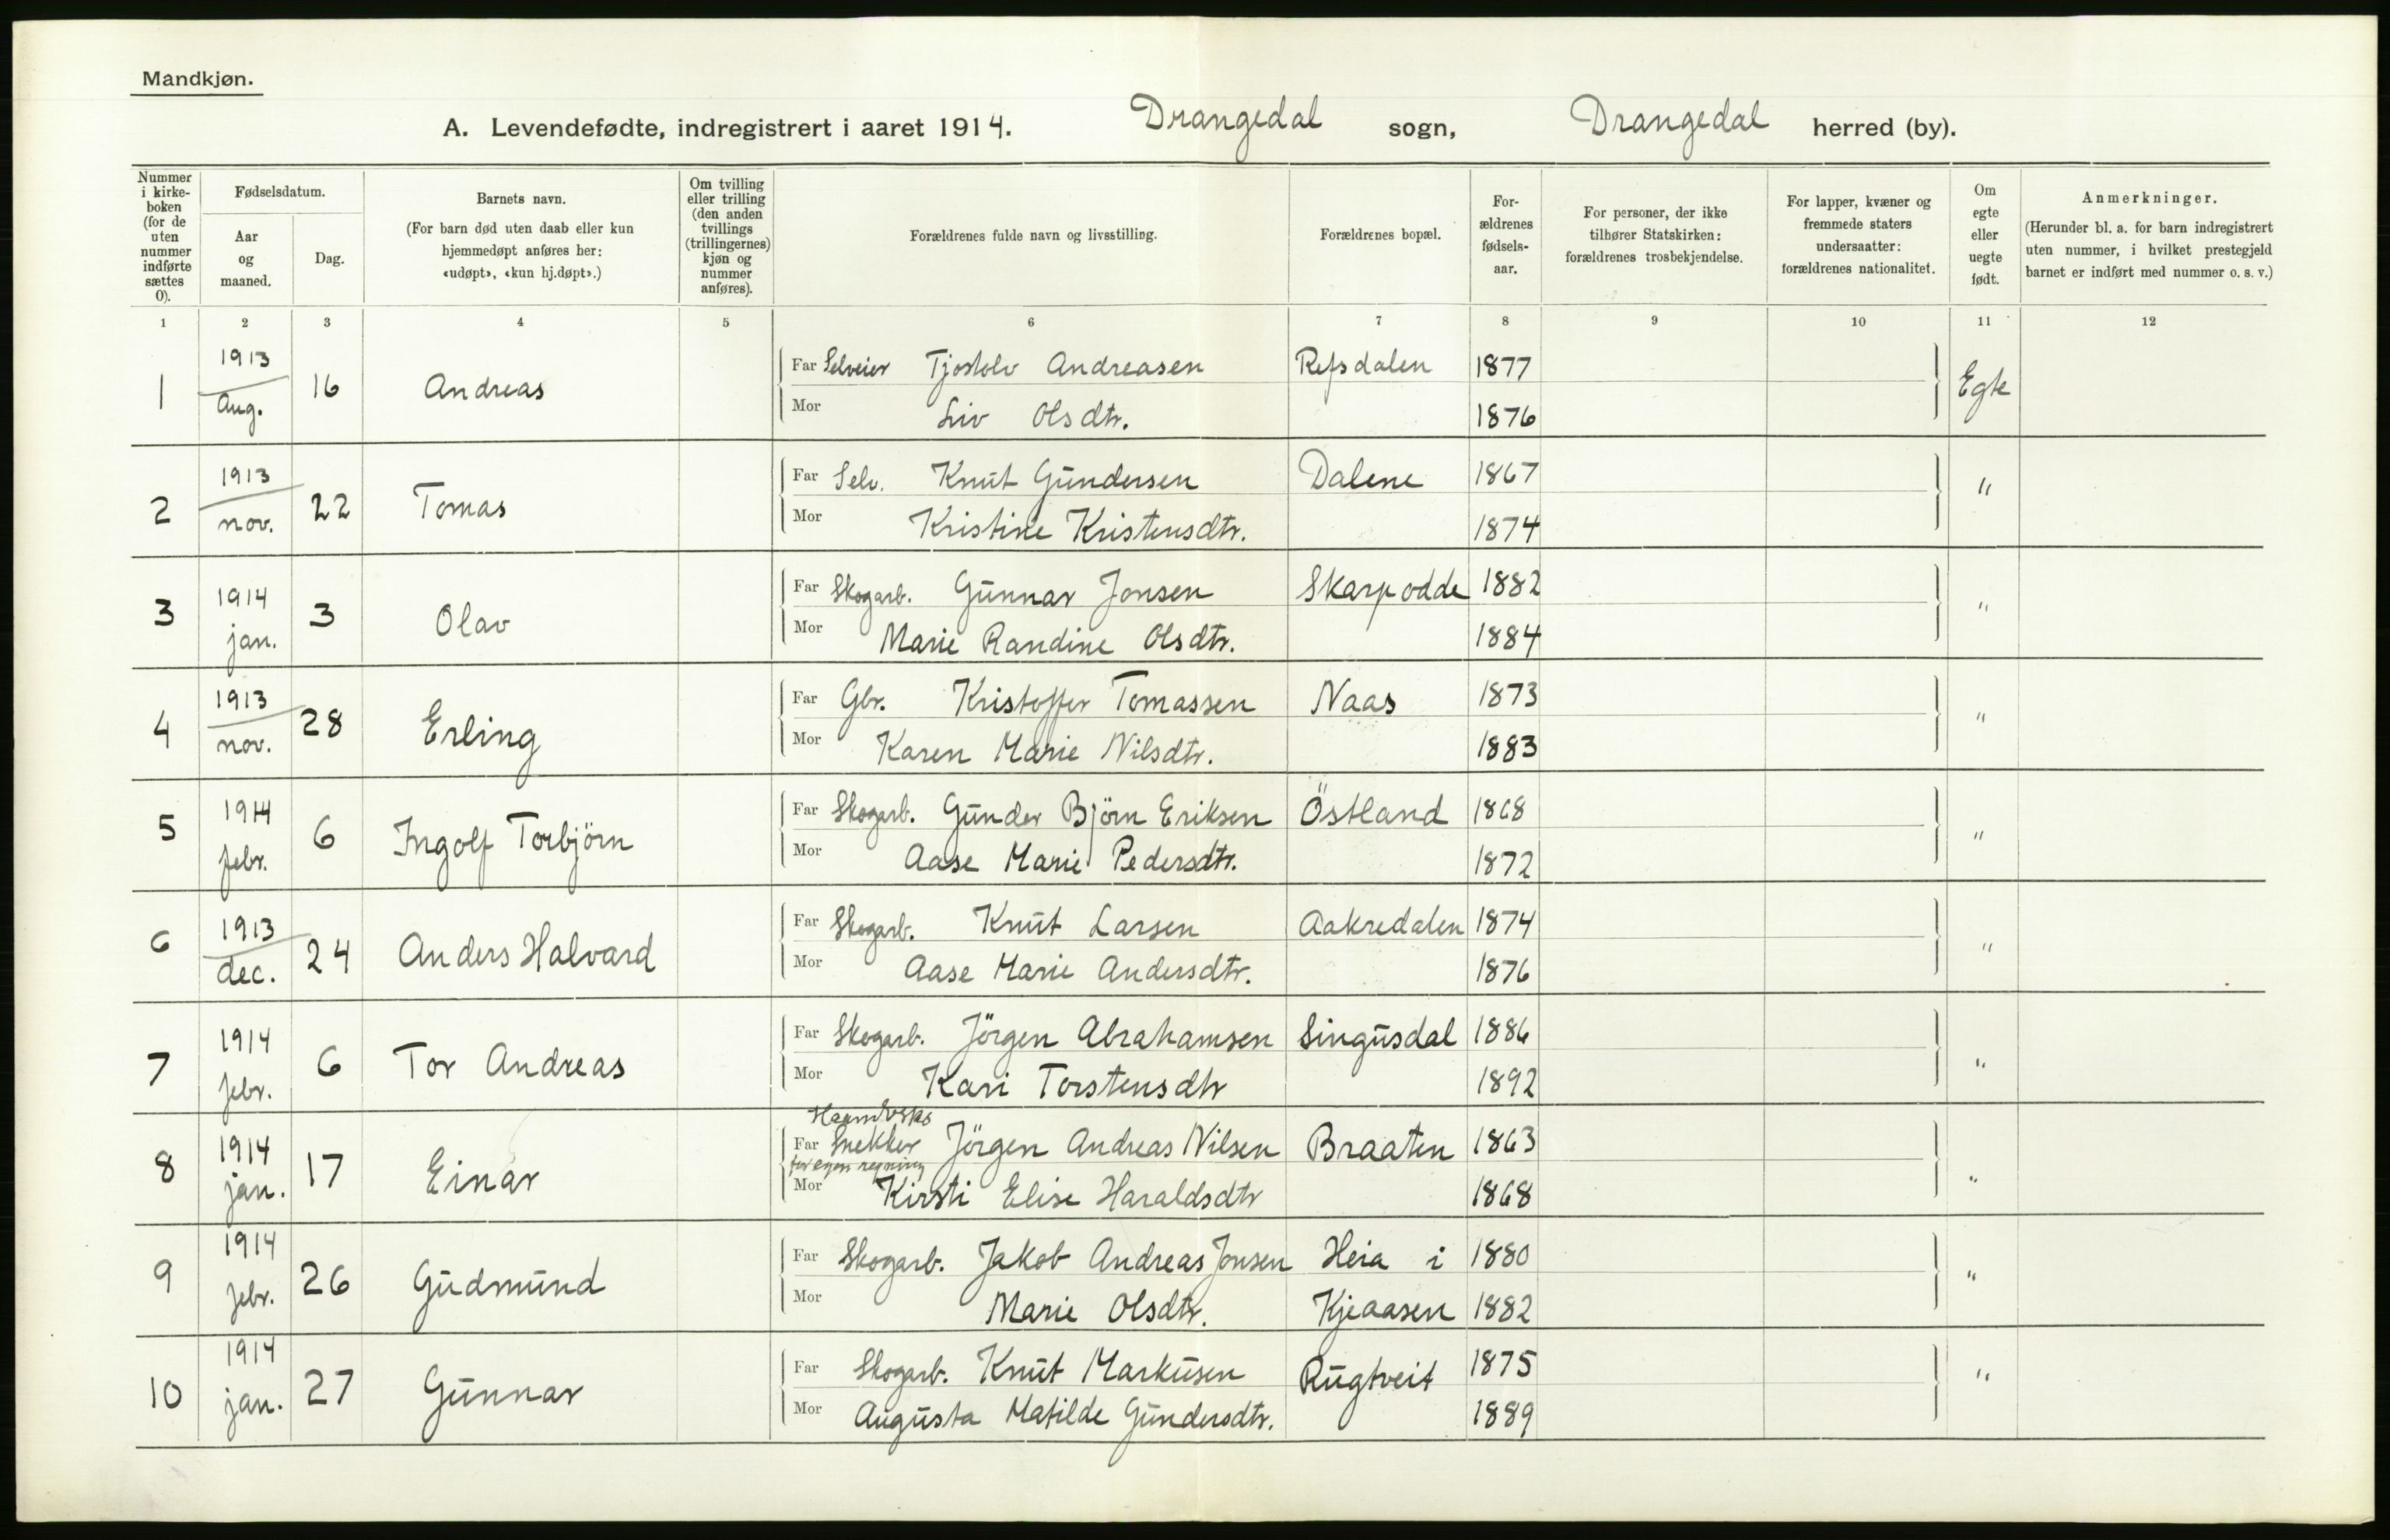 Mandkjøn.
A. Levendefødte, indregistrert i aaret 1914. Drangedal sogn, Drangedal herred (by).
Nummer i kirke-boken (for de uten nummer indførte sættes 0).
Fødselsdatum.
Aar og maaned.
Dag.
Barnets navn.
(For barn død uten daab eller kun hjemmedøpt anføres her: «udøpt», «kun hj.døpt».)
Om tvilling eller trilling (den anden tvillings (trillingernes) kjøn og nummer anføres).
Forældrenes fulde navn og livsstilling.
Forældrenes bopæl.
For-ældrenes fødsels-aar.
For personer, der ikke tilhører Statskirken: forældrenes trosbekjendelse.
For lapper, kvæner og fremmede staters undersaatter: forældrenes nationalitet.
Om egte eller uegte født.
Anmerkninger.
(Herunder bl. a. for barn indregistrert uten nummer, i hvilket prestegjeld barnet er indført med nummer o. s. v.)
1 2 3 4 5 6 7 8 9 10 11 12
1 1913 Aug. 16 Andreas Far Selveier Tjostolv Andreasen Refsdalen 1877 Egte
Mor Liv Olsdtr. 1876
2 1913 nov. 22 Tomas Far Selv. Knut Gundersen Dalene 1867 "
Mor Kristine Kristensdtr. 1874
3 1914 jan. 3 Olav Far Skogarb. Gunnar Jonsen Skarpodde 1882 "
Mor Marie Randine Olsdtr. 1884
4 1913 nov. 28 Erling Far Gbr. Kristoffer Tomassen Naas 1873 "
Mor Karen Marie Nilsdtr. 1883
5 1914 febr. 6 Ingolf Torbjörn Far Skogarb. Gunder Björn Eriksen Östland 1868 "
Mor Aase Marie Pedersdtr. 1872
6 1913 dec. 24 Anders Halvard Far Skogarb. Knut Larsen Aakredalen 1874 "
Mor Aase Marie Andersdtr. 1876
7 1914 febr. 6 Tor Andreas Far Skogarb. Jörgen Abrahamsen Singusdal 1886 "
Mor Kari Torstensdtr 1892
8 1914 jan. 17 Einar Far Snekker for egen regning Jörgen Andreas Nilsen Braaten 1863 "
Mor Kirsti Elise Haraldsdtr 1868
9 1914 febr. 26 Gudmund Far Skogarb. Jakob Andreas Jonsen Heia i 1880 "
Mor Marie Olsdtr. Kjeaasen 1882
10 1914 jan. 27 Gunnar Far Skogarb. Knut Markusen Rugtveit 1875 "
Mor Augusta Matilde Gundersdtr. 1889